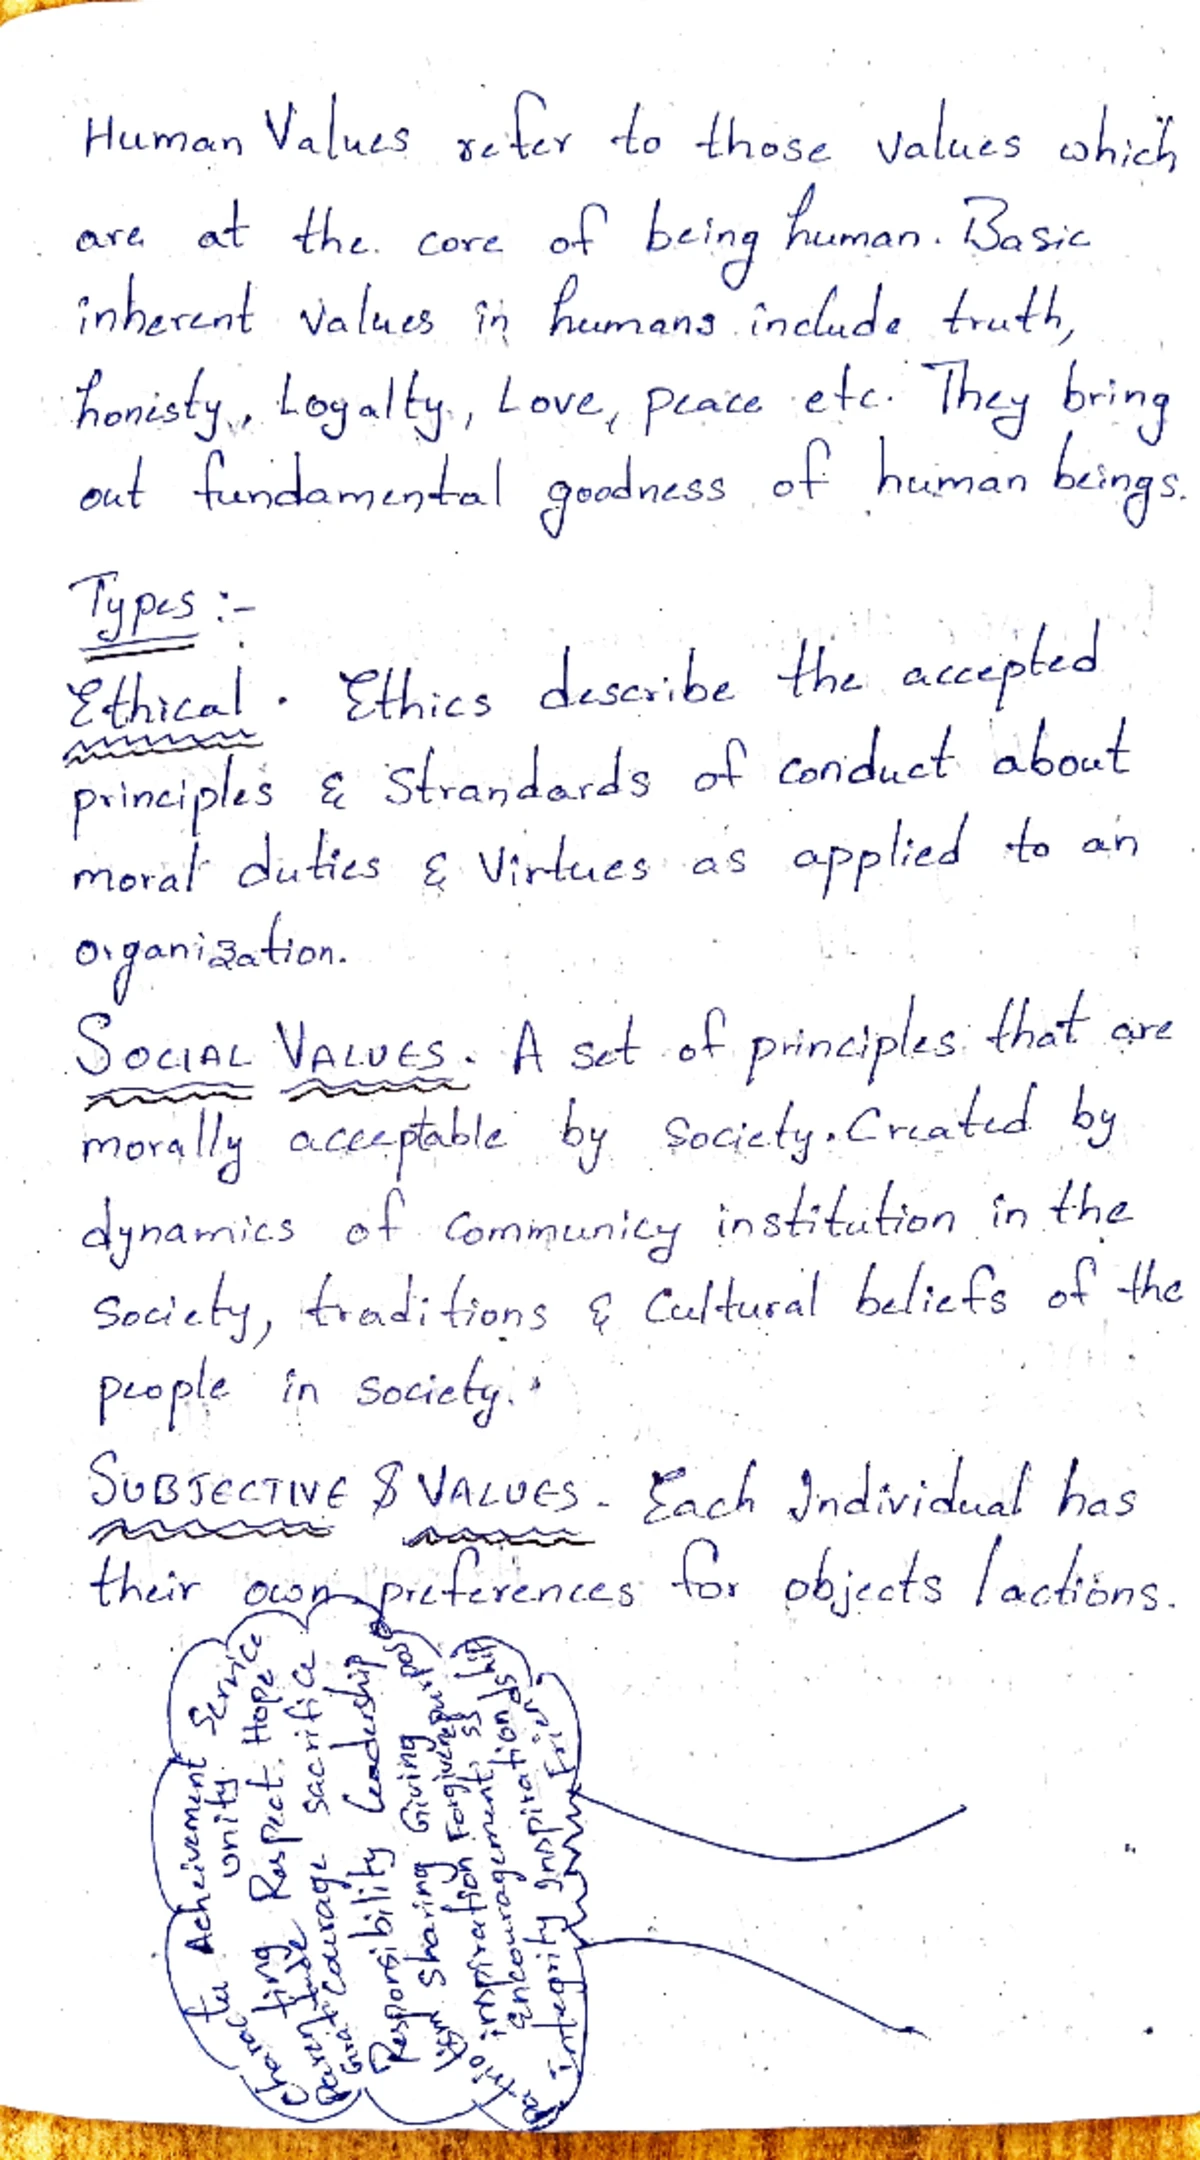 Human Values refer to those values which
are at the core of being human. Basic
inherent values in humans include truth,
honisty, Loyalty, Love, peace etc. They bring
out fundamental goodness of human beings.
Types :-
Ethical . Ethics describe the accepted
principles & Strandards of conduct about
moral duties & Virtues as applied to an
organization.
SOCIAL VALUES . A set of principles that are
morally acceptable by society. Created by
dynamics of communicy institution in the
society, traditions & Cultural beliefs of the
people in society.
SUBJECTIVE $ VALUES - Each Individual has
their own preferences for objects / actions.
Character Acheivement Service
unity
Parenting Respect Hope
Gratitude Courage sacrifice
Responsibility Leadership
Sharing Giving
inspiration Forgiveness
Patriotism Encouragement
Integrity Inspiration Friendship